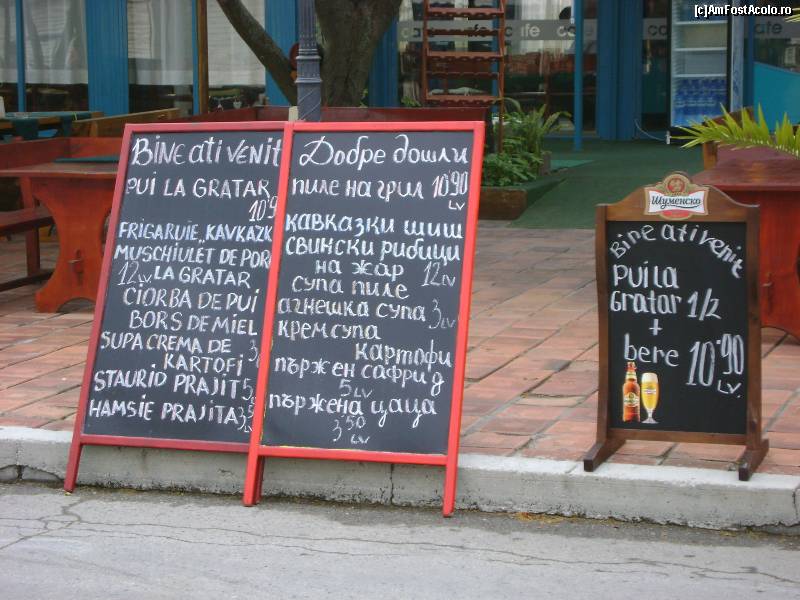 [c]AmFostAcolo.ro
cafe
Bine ati venit
PUI LA GRATAR
10
FRIGARUIE „KAVKAZK
MUSCHIULET DE POR
12 LV LA GRATAR
CIORBA DE PUI
BORS DE MIEL
SUPA CREMA DE
KARTOFI 3
STAURID PRAJIT 5
HAMSIE PRAJITA 3
Добре дошли
пиле на грил 10.90
LV
кавказки шиш
свински рибици
на жар 12 LV
супа пиле
агнешка супа 3 LV
крем супа
картофи
пържен сафрид
5 LV
пържена цаца
3.50 LV
Шуменско
Bine ati venit
Pui la
Gratar 1/2
+
bere 10.90
LV.